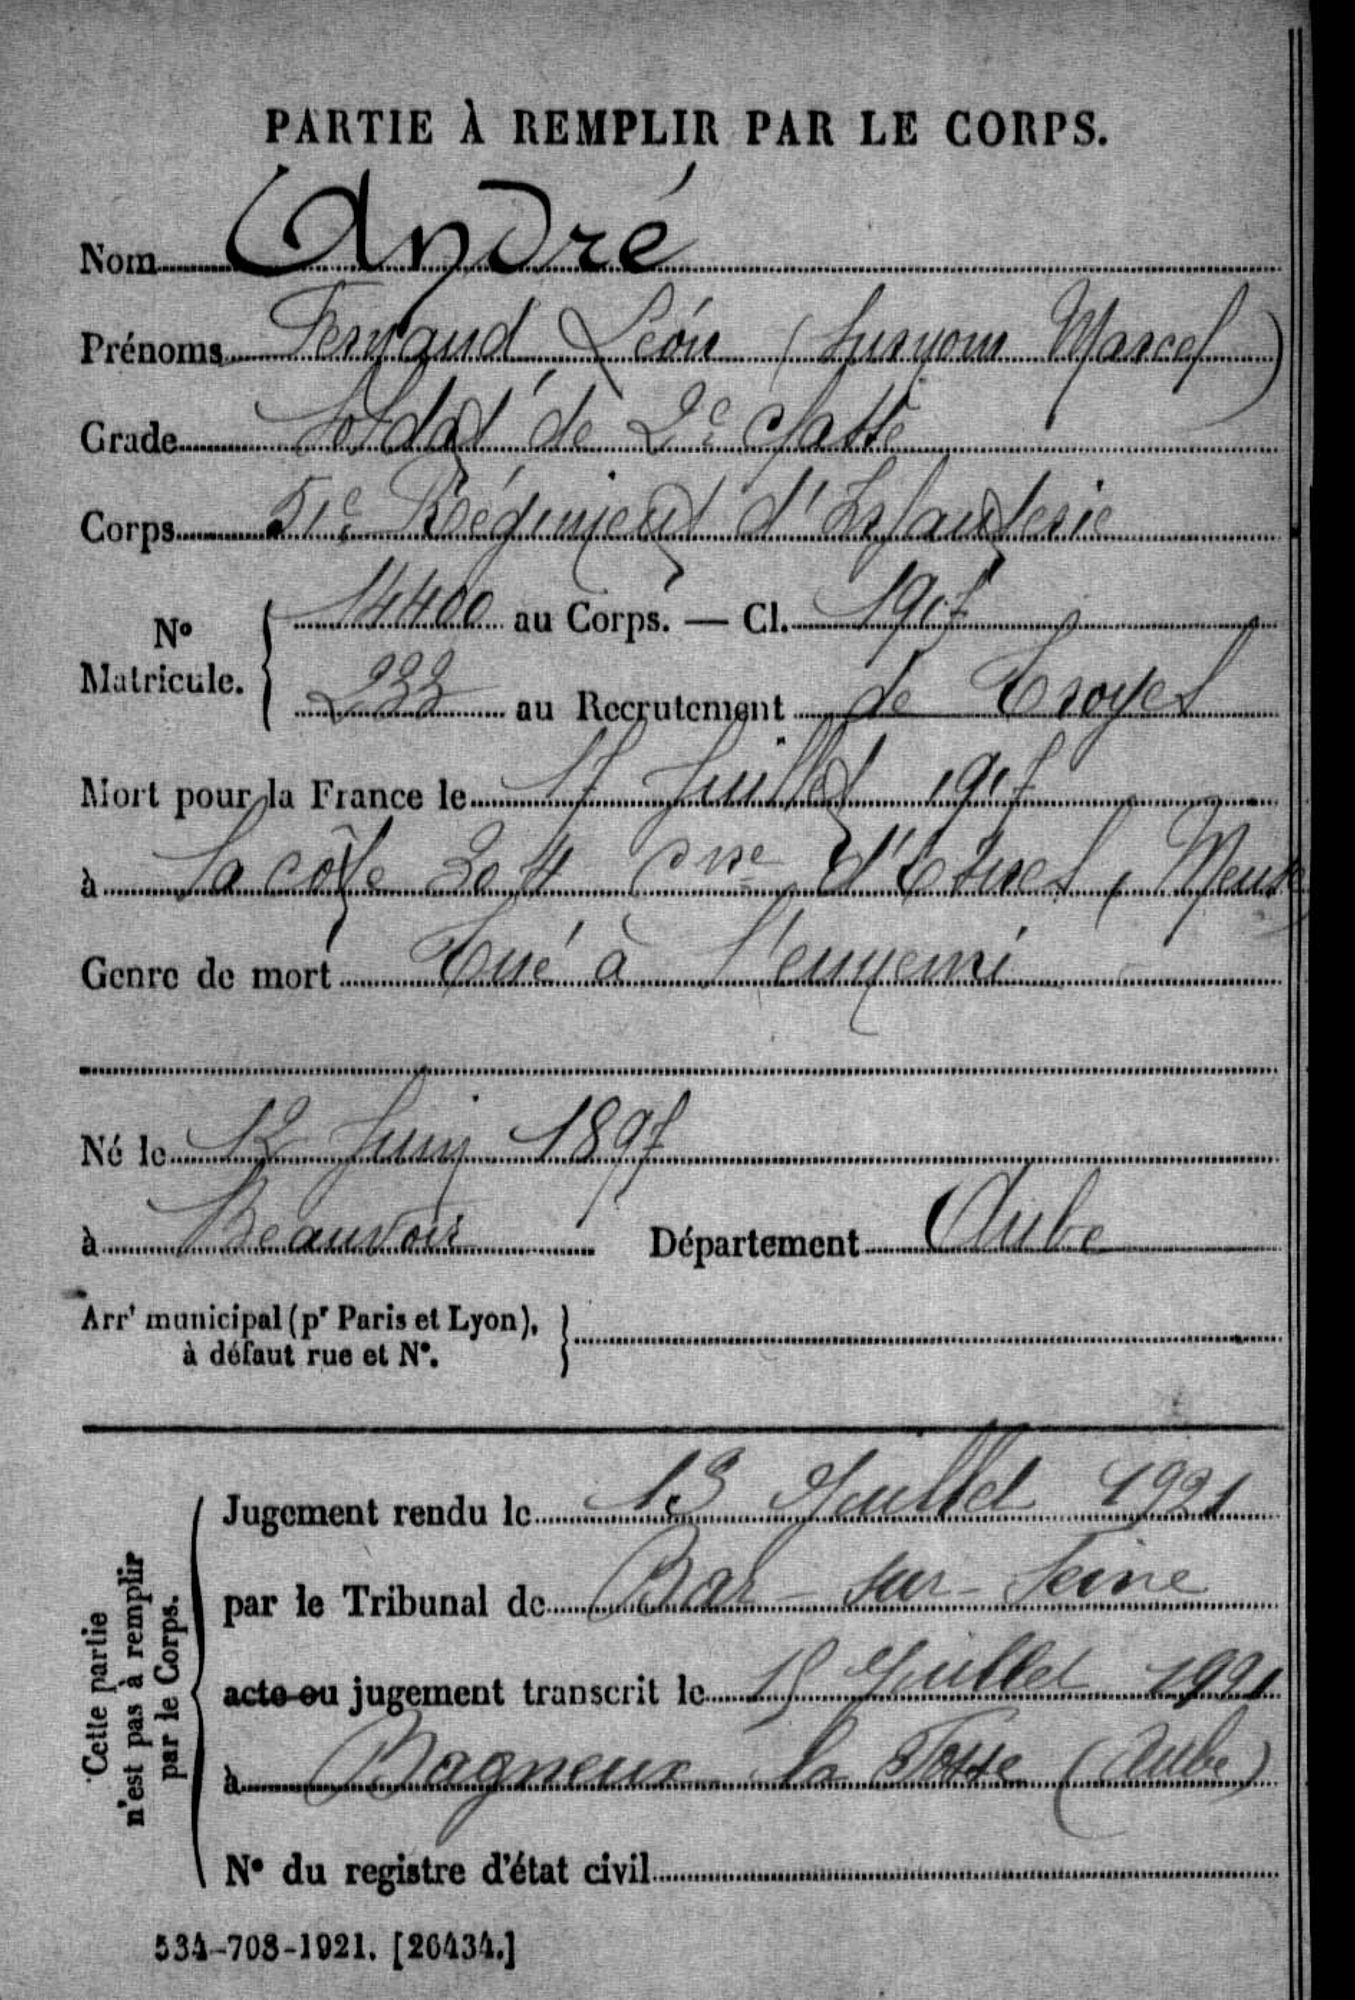 PARTIE À REMPLIR PAR LE CORPS.
Nom André
Prénoms Fernand Léon (surnom Marcel)
Grade Soldat de 2e classe
Corps 51e Régiment d'Infanterie
N° Matricule. 14400 au Corps. — Cl. 1917
233 au Recrutement de Troyes
Mort pour la France le 17 Juillet 1917
à la côte 304 Cne d'Esnes, Meuse
Genre de mort Tué à l'ennemi
Né le 12 Juin 1897
à Beauvoir Département Aube
Arrt municipal (pr Paris et Lyon),
à défaut rue et N°.
Cette partie
n'est pas à remplir
par le Corps.
Jugement rendu le 13 Juillet 1921
par le Tribunal de Bar-sur-Seine
acte ou jugement transcrit le 15 Juillet 1921
à Bagneux la Fosse (Aube)
N° du registre d'état civil
534-708-1921. [26434.]